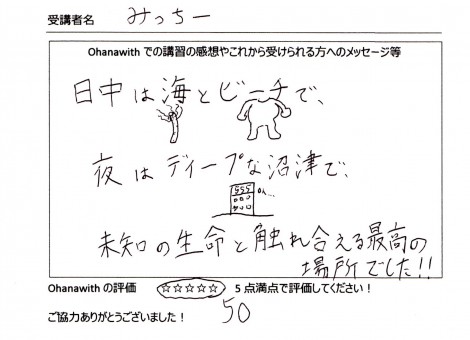 受講者名 みっちー
Ohanawith での講習の感想やこれから受けられる方へのメッセージ等
日中は海とビーチで、
夜はディープな沼津で、
未知の生命と触れ合える最高の
場所でした!!
Ohanawith の評価 ☆☆☆☆☆ 5 点満点で評価してください！
ご協力ありがとうございました！ 50